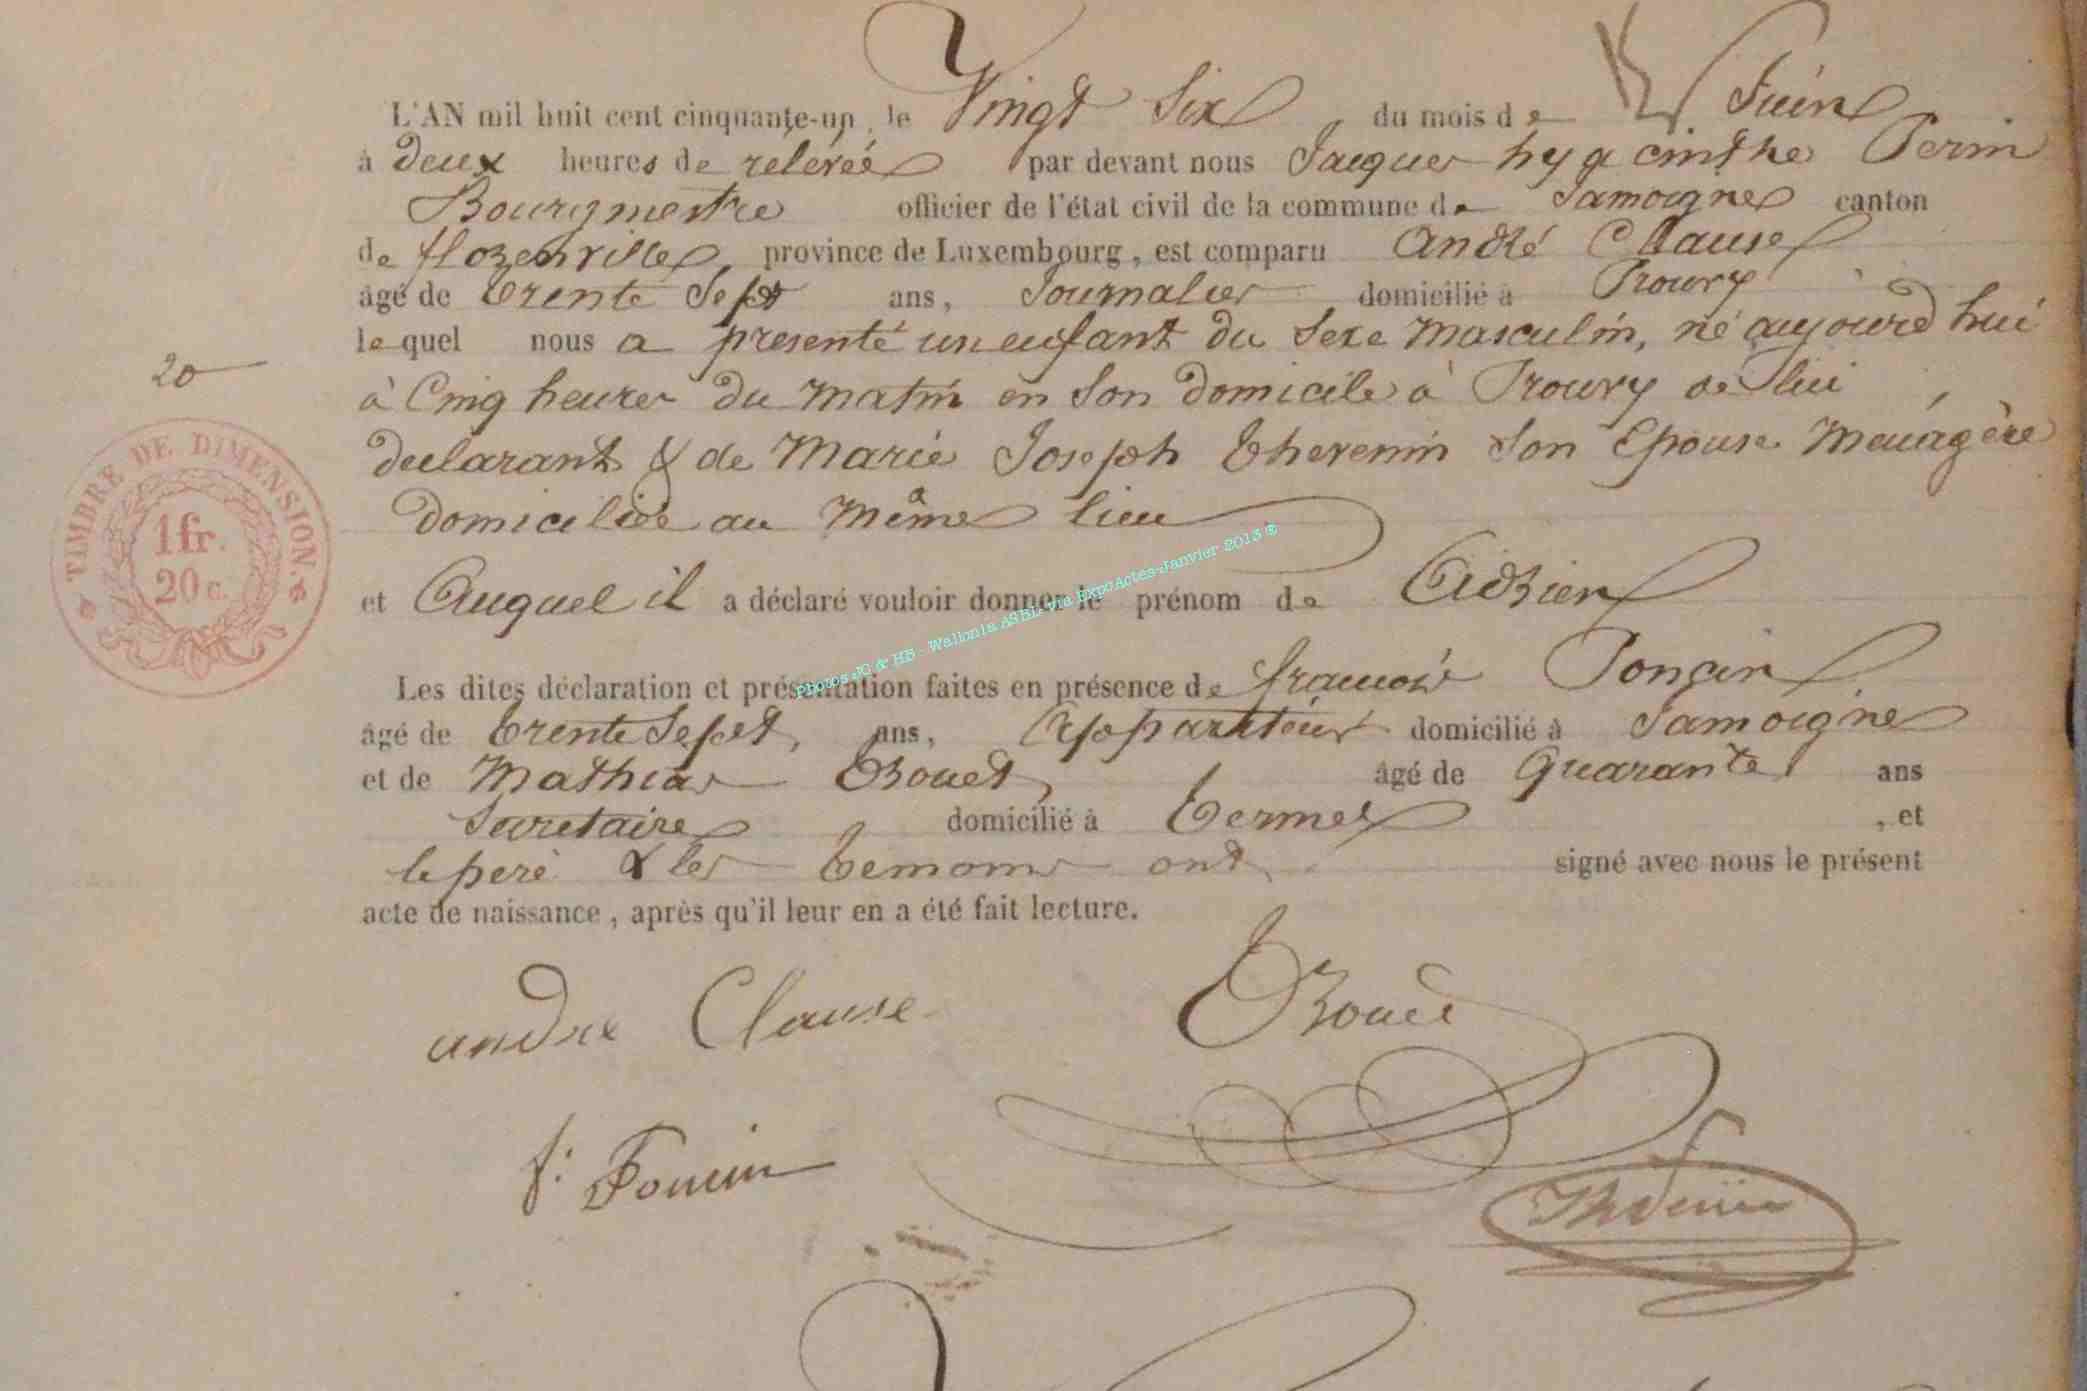 L'AN mil huit cent cinquante-un, le Vingt Six du mois de Juin
à deux heures de rélévée par devant nous Jacques hyacinthe Perin
Bourgmestre officier de l'état civil de la commune de Jamoigne canton
de florenville, province de Luxembourg, est comparu André Clause
âgé de trente Sept ans, Journalier domicilié à Prouvy
lequel nous a presenté un enfant du Sexe Masculin, né aujourd hui
20
à Cinq heures du matin en Son domicile à Prouvy de lui
declarant & de Marie Joseph thevenin Son Epouse Menagère
domiciliée au Même lieu
TIMBRE DE DIMENSION.
1fr.
20 c.
et Auquel il a déclaré vouloir donner le prénom de Adrien
Photos JG & HB - Wallonia ASBL via ExpoActes-Janvier 2013 ®
Les dites déclaration et présentation faites en présence de francois Ponçin
âgé de trente Sept, ans, Appariteur domicilié à Jamoigne
et de Mathias Bouet, âgé de Quarante ans
Secretaire domicilié à termes , et
le pere & les temoins ont signé avec nous le présent
acte de naissance, après qu'il leur en a été fait lecture.
andre Clause
f: Poncin